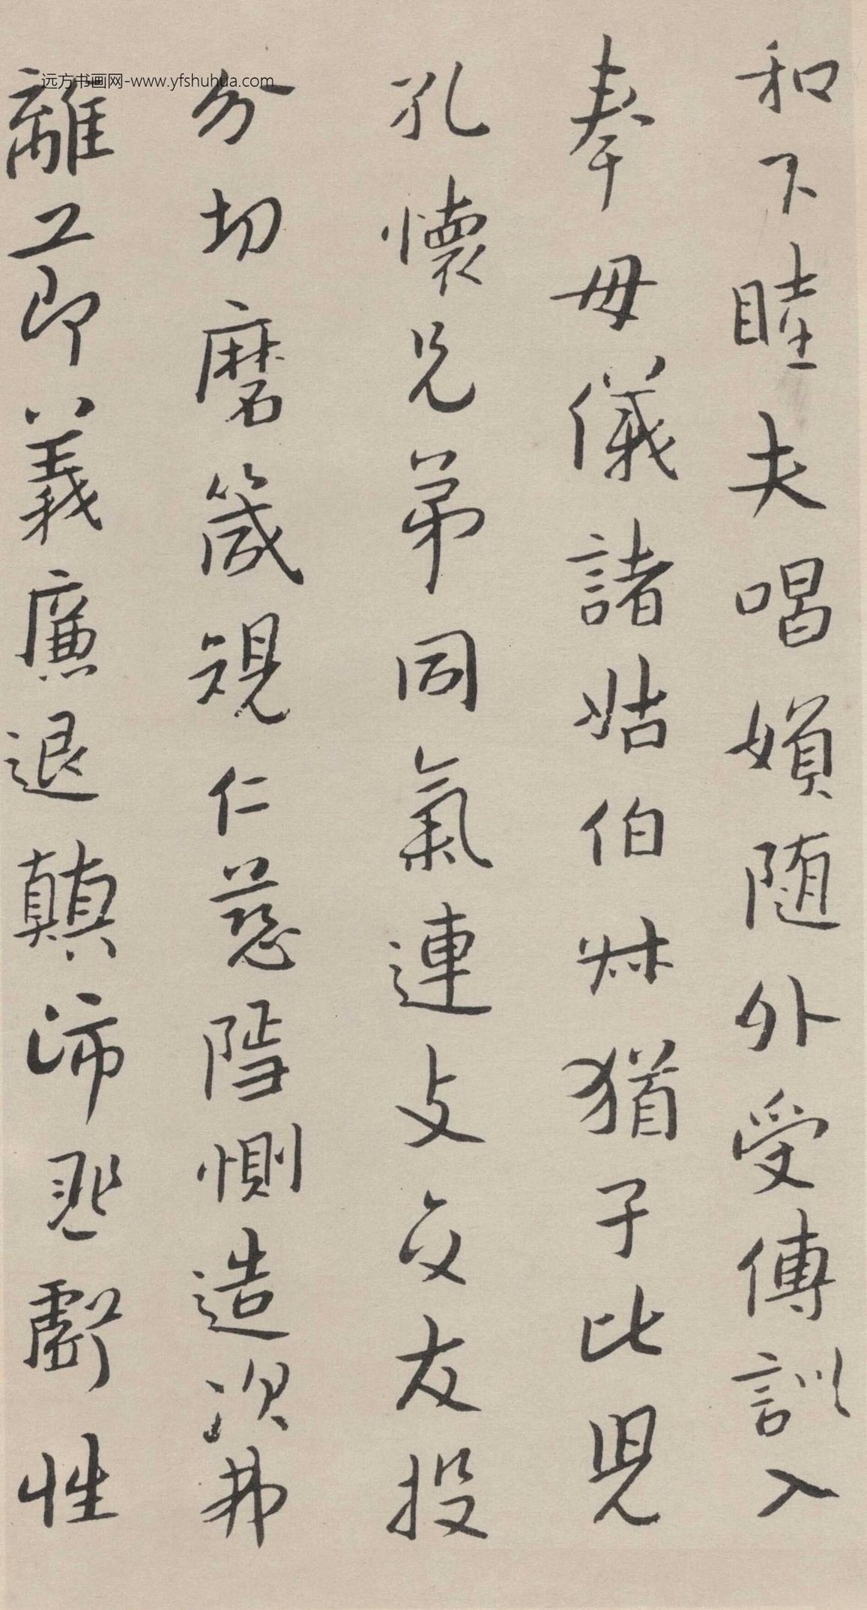 远方书画网-www.yfshuhua.com
和下睦夫唱媍随外受傅訓入
奉母儀諸姑伯叔猶子比兒
孔懷兄弟同氣連支交友投
分切磨箴規仁慈隱惻造次弗
離節義廉退顛沛匪虧性